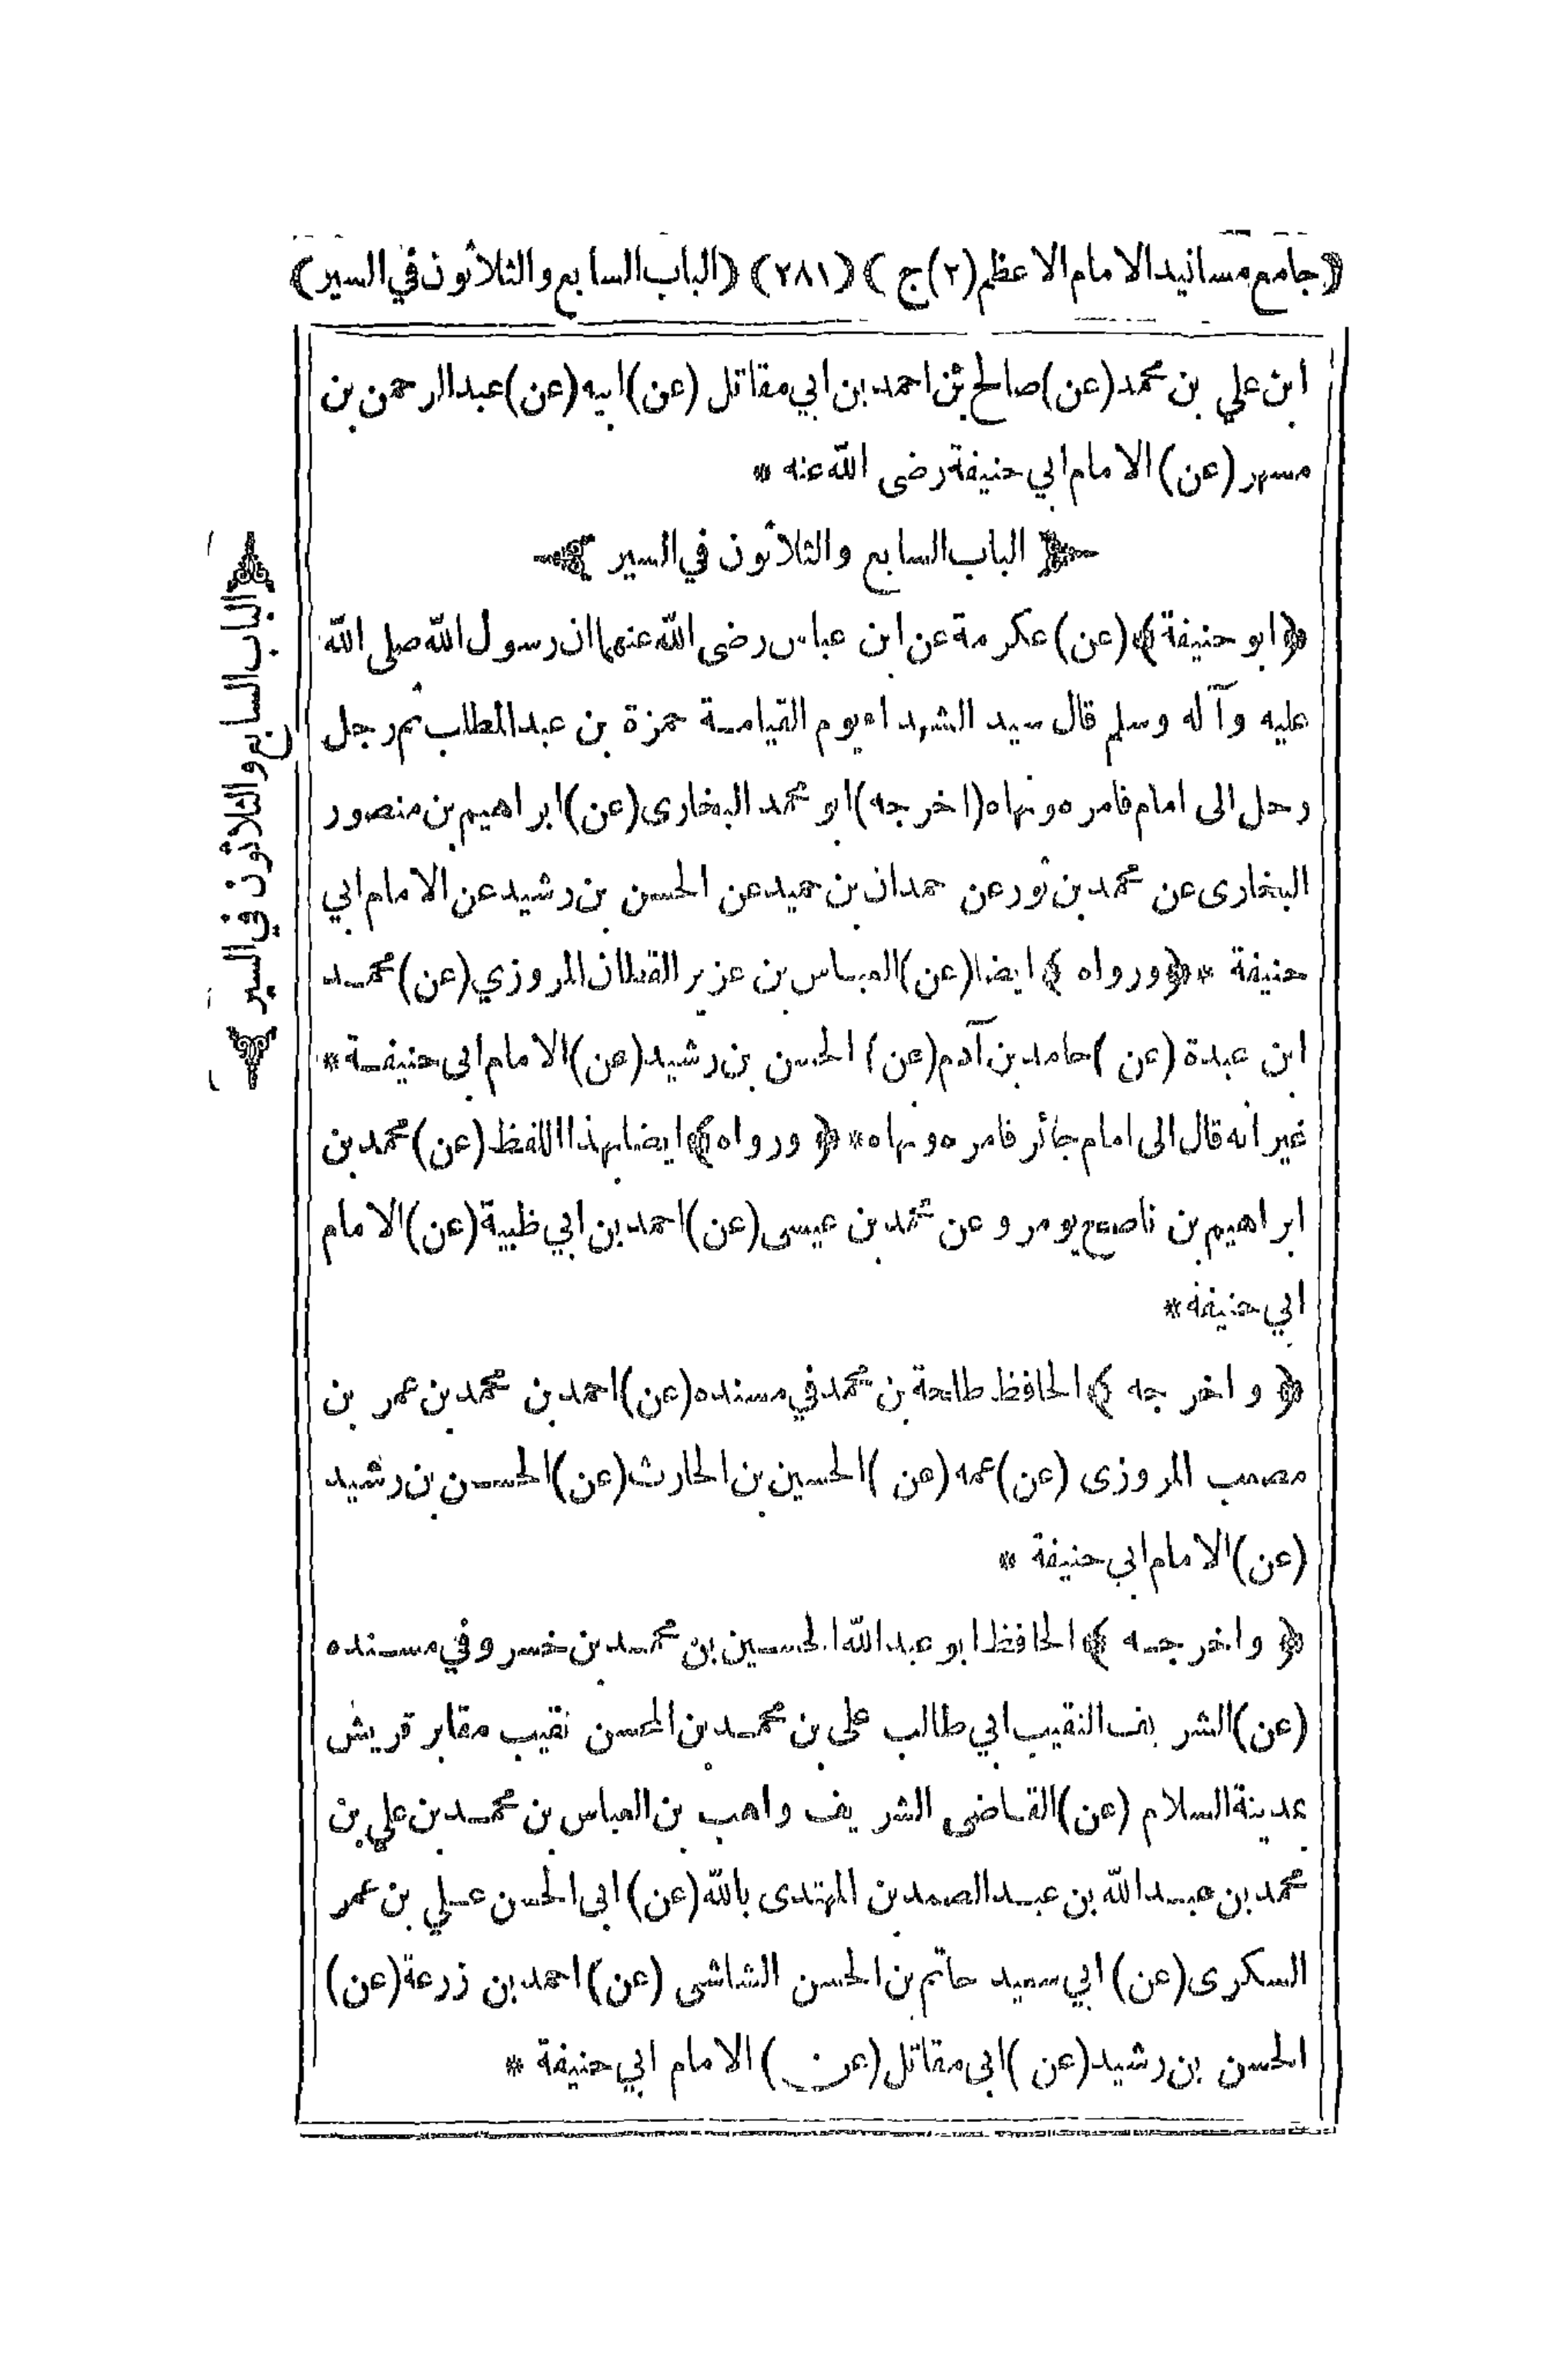 ﴿جامع مسانيد الامام الاعظم (٢) ج ﴾ (٢٨١) ﴿الباب السابع والثلاثون في السير﴾
ابن علي بن محمد (عن) صالح بن احمد بن ابي مقاتل (عن) ابيه (عن) عبد الرحمن بن
مسهر (عن) الامام ابي حنيفة رضى الله عنه *
﴿ الباب السابع والثلاثون في السير ﴾
﴿ابو حنيفة﴾ (عن) عكرمة عن ابن عباس رضى الله عنهما ان رسول الله صلى الله
عليه وآله وسلم قال سيد الشهداء يوم القيامة حمزة بن عبد المطلب ثم رجل
دخل الى امام فامره ونهاه (اخرجه) ابو محمد البخارى (عن) ابراهيم بن منصور
البخارى عن محمد بن ثور عن حمدان بن حميد عن الحسن بن رشيد عن الامام ابي
حنيفة * ﴿ورواه ﴾ ايضا (عن) العباس بن عزير القطان المروزي (عن) محمد
ابن عبدة (عن) حامد بن آدم (عن) الحسن بن رشيد (عن) الامام ابى حنيفة *
غير انه قال الى امام جائر فامره ونهاه * ﴿ ورواه﴾ ايضا بهذا اللفظ (عن) محمد بن
ابراهيم بن ناصح بومرو عن محمد بن عيسى (عن) احمد بن ابي ظبية (عن) الامام
ابي حنيفة *
﴿ واخرجه ﴾ الحافظ طلحة بن محمد في مسنده (عن) احمد بن محمد بن عمر بن
مصعب المروزى (عن) عمه (عن) الحسين بن الحارث (عن) الحسن بن رشيد
(عن) الامام ابي حنيفة *
﴿ واخرجه ﴾ الحافظ ابو عبد الله الحسين بن محمد بن خسرو في مسنده
(عن) الشريف النقيب ابي طالب على بن محمد بن المحسن نقيب مقابر قريش
بمدينة السلام (عن) القاضى الشريف واهب بن العباس بن محمد بن علي بن
محمد بن عبد الله بن عبد الصمد بن المهتدى بالله (عن) ابى الحسن علي بن عمر
السكرى (عن) ابي سعيد حاتم بن الحسن الشاشى (عن) احمد بن زرعة (عن)
الحسن بن رشيد (عن) ابى مقاتل (عن) الامام ابي حنيفة *
﴿الباب السابع والثلاثون في السير﴾